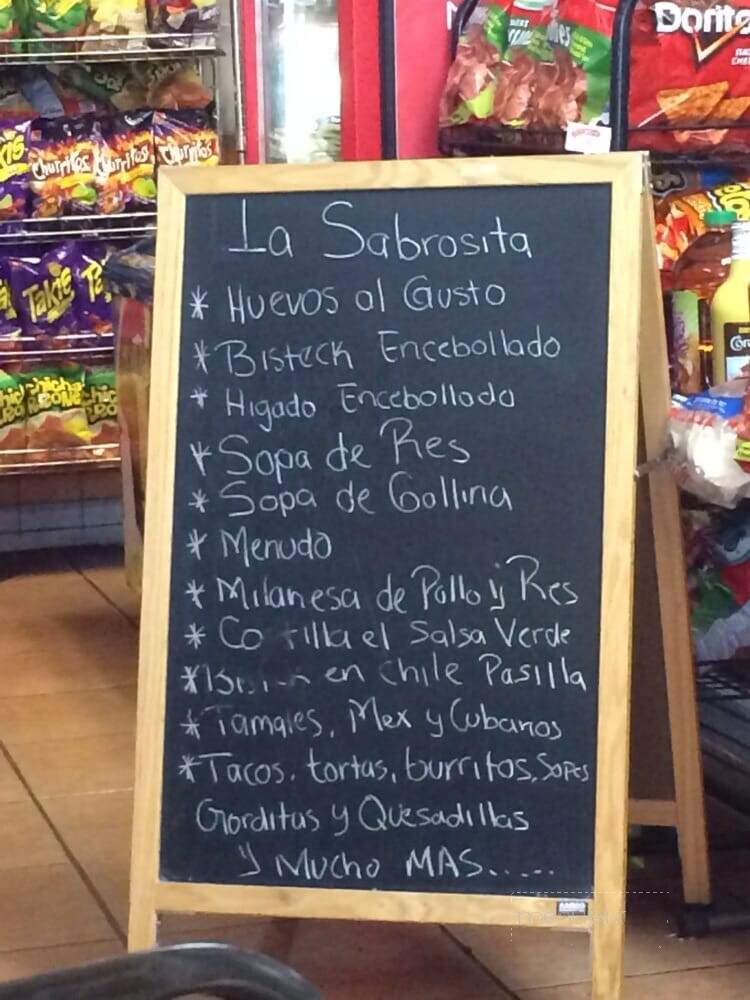 La Sabrosita
* Huevos al Gusto
* Bisteck Encebollado
* Higado Encebollado
* Sopa de Res
* Sopa de Gallina
* Menudo
* Milanesa de Pollo y Res
* Co tilla el Salsa Verde
* en Chile Pasilla
* Tamales, Mex y Cubanos
* Tacos. tortas, burritos, Sopes
Gorditas y Quesadillas
y Mucho MAS.....
Doritos
Churritos
Churritos
Churritos
Takis